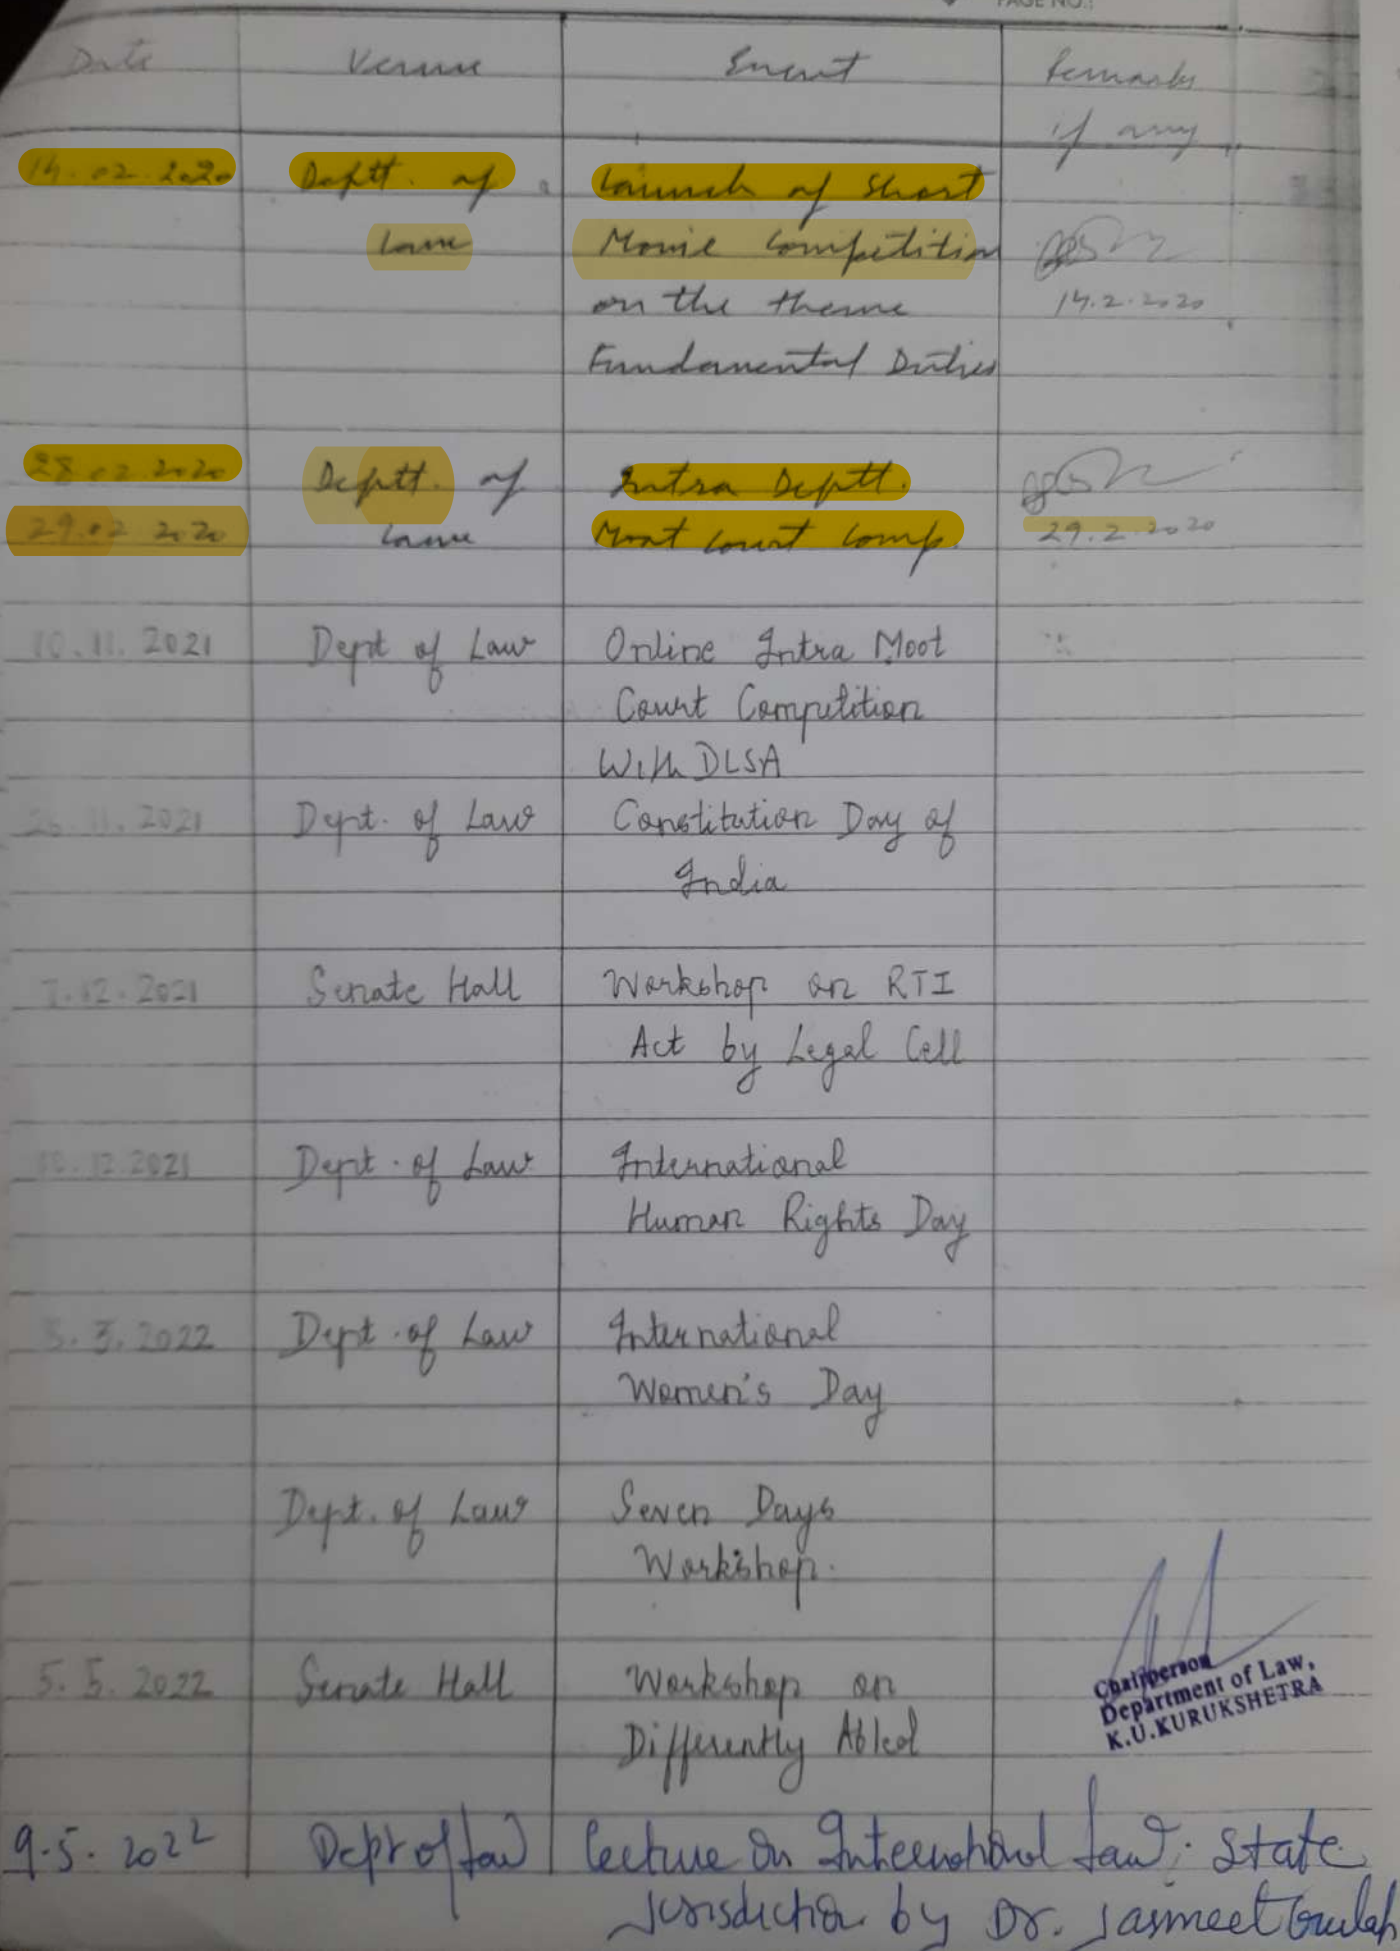 PAGE NO.:
Date Venue Event Remarks
if any
14.02.2020 Deptt. of Launch of Short
Law Movie Competition
on the theme 14.2.2020
Fundamental Duties
28.02.2020 Deptt. of Intra Deptt.
29.02.2020 Law Moot Court Comp. 29.2.2020
10.11.2021 Dept of Law Online Intra Moot
Court Competition
With DLSA
26.11.2021 Dept. of Law Constitution Day of
India
7.12.2021 Senate Hall Workshop on RTI
Act by Legal Cell
10.12.2021 Dept. of Law International
Human Rights Day
3.2022 Dept. of Law International
Women's Day
Dept. of Law Seven Days
Workshop.
5.5.2022 Senate Hall Workshop on
Differently Abled
Chairperson
Department of Law,
K.U.KURUKSHETRA
9.5.2022 Dept of Law Lecture on International Law: State
Jurisdiction by Dr. Jasmeet